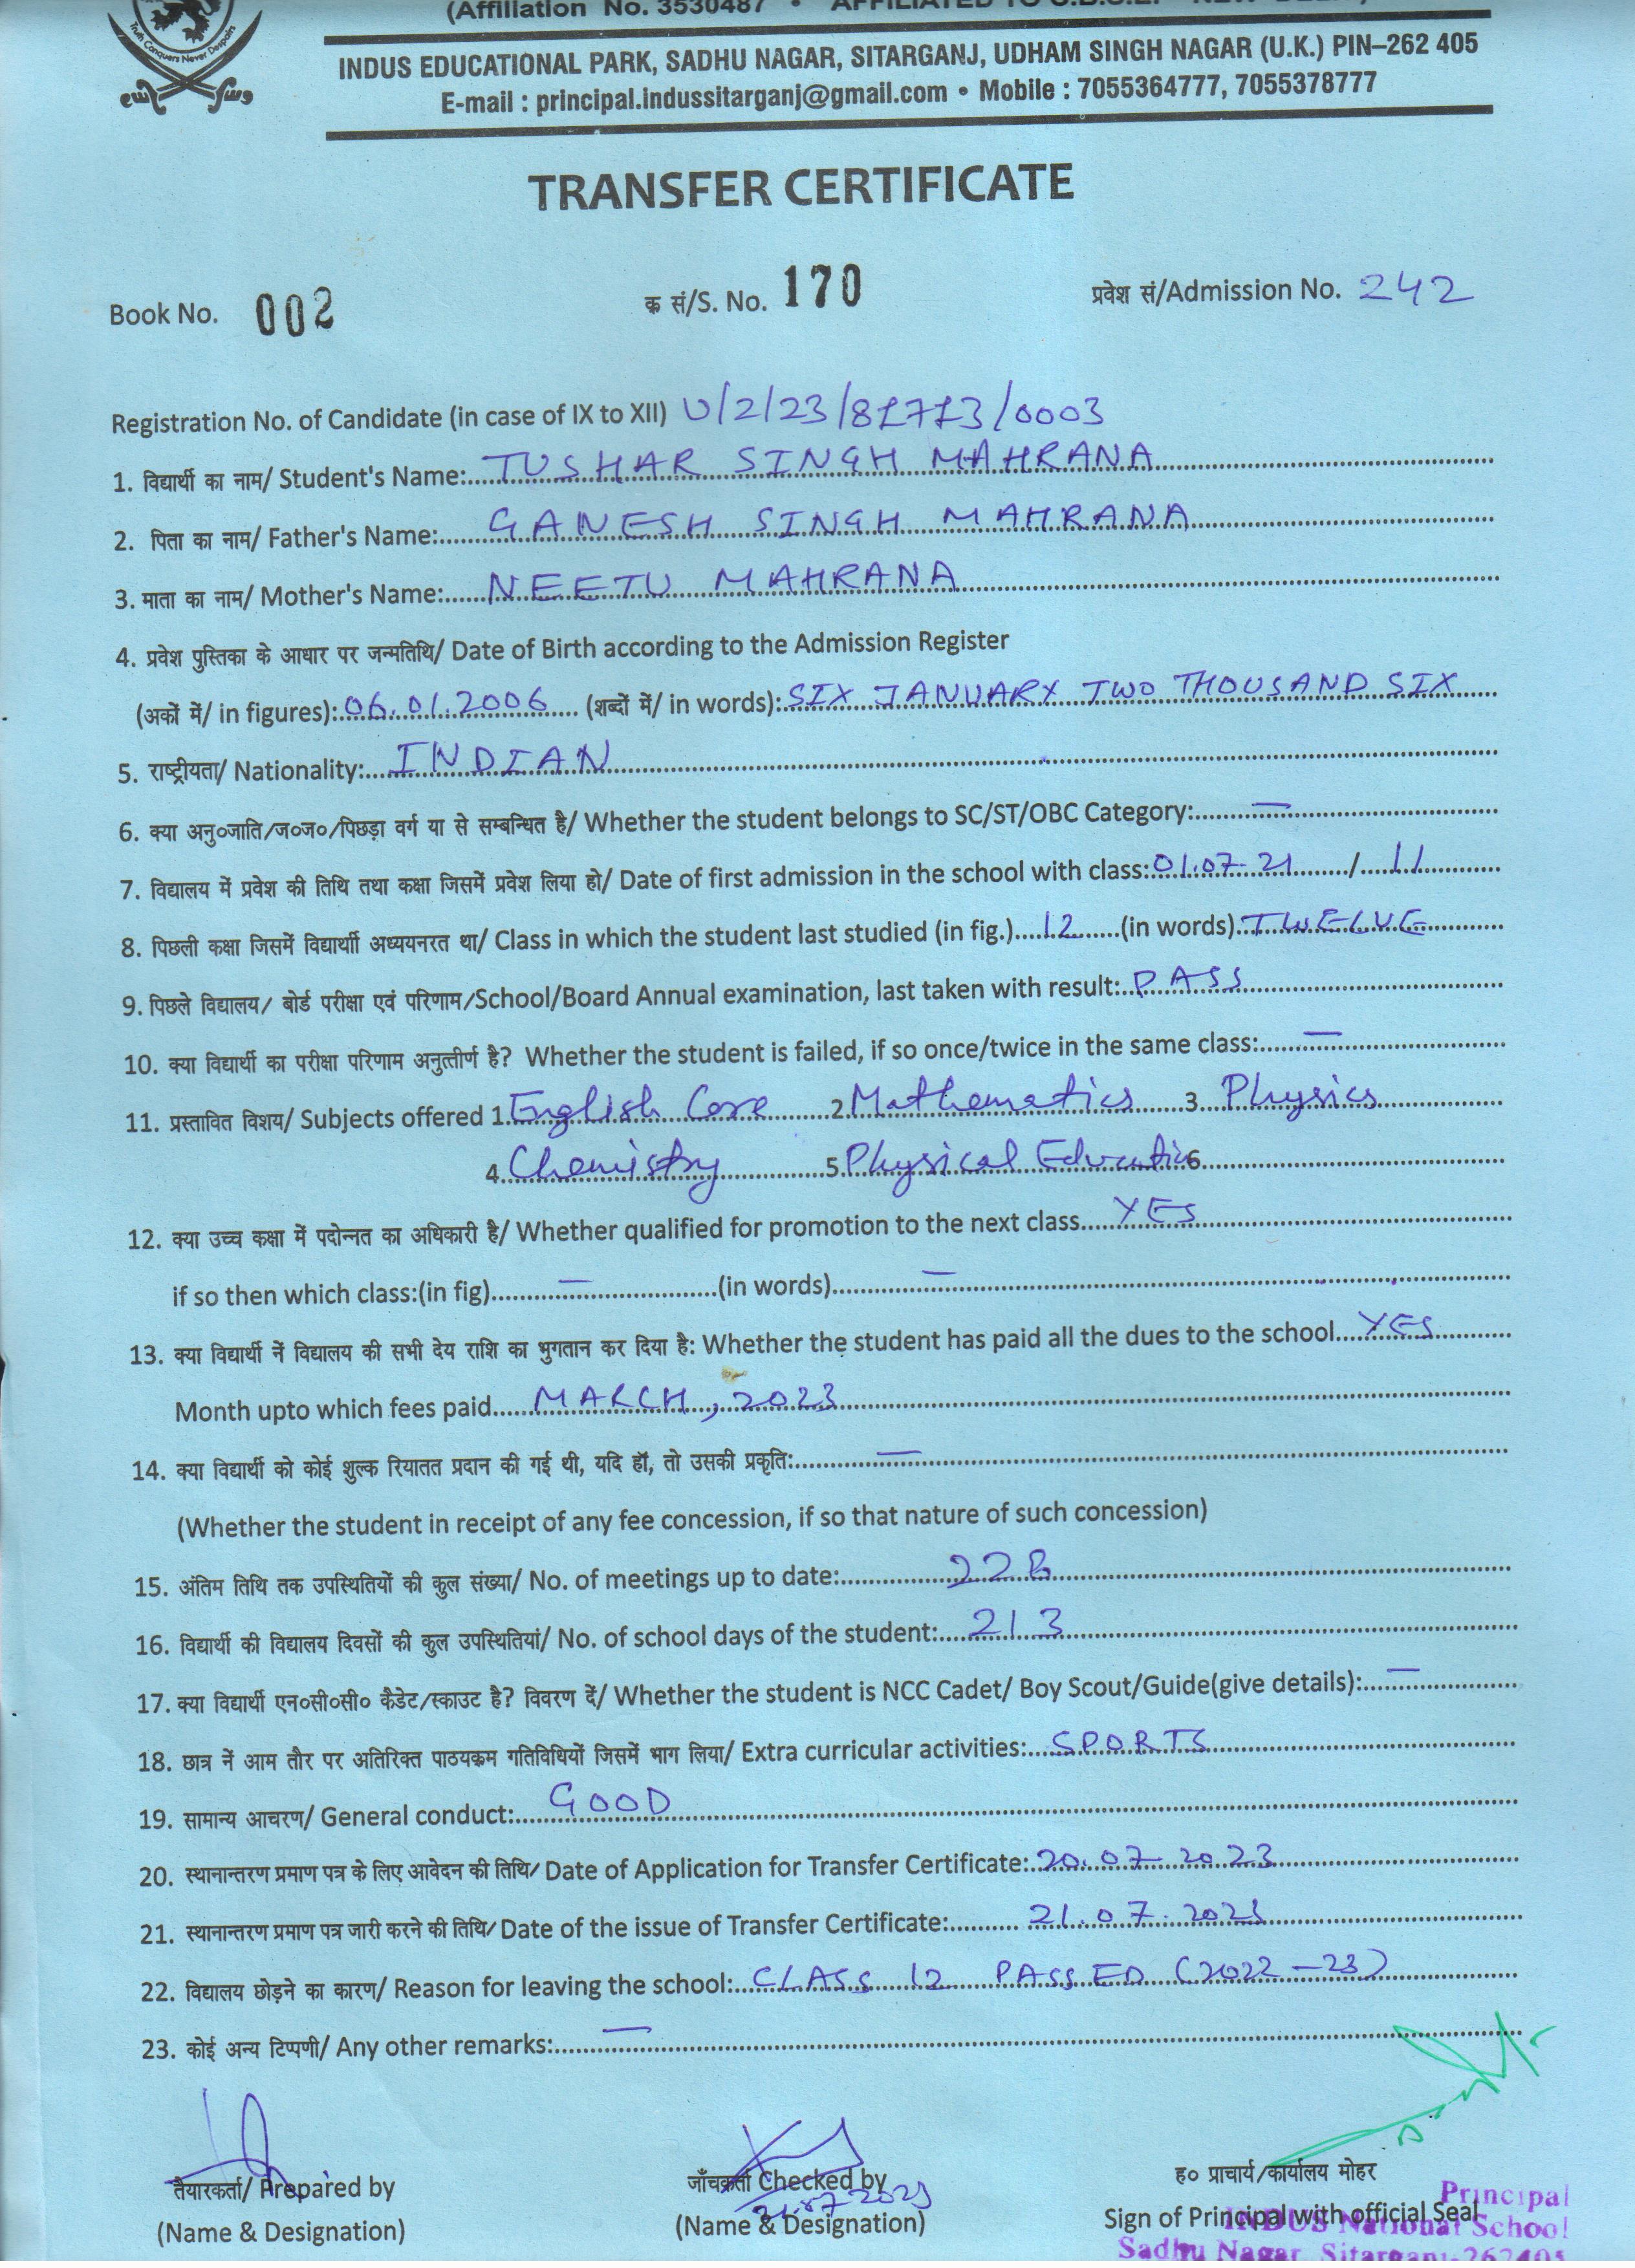 (Affiliation No. 3530487 • AFFILIATED TO C.B.S.E. NEW DELHI)
Truth Conquers Never Despair
INDUS EDUCATIONAL PARK, SADHU NAGAR, SITARGANJ, UDHAM SINGH NAGAR (U.K.) PIN–262 405
E-mail : principal.indussitarganj@gmail.com • Mobile : 7055364777, 7055378777
TRANSFER CERTIFICATE
Book No. 002 क्र सं/S. No. 170 प्रवेश सं/Admission No. 242
Registration No. of Candidate (in case of IX to XII) U/2/23/81713/0003
1. विद्यार्थी का नाम/ Student's Name: TUSHAR SINGH MAHRANA
2. पिता का नाम/ Father's Name: GANESH SINGH MAHRANA
3. माता का नाम/ Mother's Name: NEETU MAHRANA
4. प्रवेश पुस्तिका के आधार पर जन्मतिथि/ Date of Birth according to the Admission Register
(अकों में/ in figures): 06.01.2006 (शब्दों में/ in words): SIX JANUARY TWO THOUSAND SIX
5. राष्ट्रीयता/ Nationality: INDIAN
6. क्या अनु०जाति/ज०ज०/पिछड़ा वर्ग या से सम्बन्धित है/ Whether the student belongs to SC/ST/OBC Category: —
7. विद्यालय में प्रवेश की तिथि तथा कक्षा जिसमें प्रवेश लिया हो/ Date of first admission in the school with class: 01.07.21 / 11
8. पिछली कक्षा जिसमें विद्यार्थी अध्ययनरत था/ Class in which the student last studied (in fig.) 12 (in words) TWELVE
9. पिछले विद्यालय/ बोर्ड परीक्षा एवं परिणाम/School/Board Annual examination, last taken with result: PASS
10. क्या विद्यार्थी का परीक्षा परिणाम अनुत्तीर्ण है? Whether the student is failed, if so once/twice in the same class: —
11. प्रस्तावित विशय/ Subjects offered 1. English Core 2. Mathematics 3. Physics
4. Chemistry 5. Physical Education 6.
12. क्या उच्च कक्षा में पदोन्नत का अधिकारी है/ Whether qualified for promotion to the next class YES
if so then which class:(in fig) — (in words) —
13. क्या विद्यार्थी नें विद्यालय की सभी देय राशि का भुगतान कर दिया है: Whether the student has paid all the dues to the school YES
Month upto which fees paid MARCH, 2023
14. क्या विद्यार्थी को कोई शुल्क रियातत प्रदान की गई थी, यदि हॉ, तो उसकी प्रकृति: —
(Whether the student in receipt of any fee concession, if so that nature of such concession)
15. अंतिम तिथि तक उपस्थितियों की कुल संख्या/ No. of meetings up to date: 228
16. विद्यार्थी की विद्यालय दिवसों की कुल उपस्थितियां/ No. of school days of the student: 213
17. क्या विद्यार्थी एन०सी०सी० कैडेट/स्काउट है? विवरण दें/ Whether the student is NCC Cadet/ Boy Scout/Guide(give details): —
18. छात्र नें आम तौर पर अतिरिक्त पाठयक्रम गतिविधियों जिसमें भाग लिया/ Extra curricular activities: SPORTS
19. सामान्य आचरण/ General conduct: GOOD
20. स्थानान्तरण प्रमाण पत्र के लिए आवेदन की तिथि/ Date of Application for Transfer Certificate: 20.07.2023
21. स्थानान्तरण प्रमाण पत्र जारी करने की तिथि/ Date of the issue of Transfer Certificate: 21.07.2023
22. विद्यालय छोड़ने का कारण/ Reason for leaving the school: CLASS 12 PASSED (2022-23)
23. कोई अन्य टिप्पणी/ Any other remarks: —
तैयारकर्ता/ Prepared by जाँचकर्ता Checked by ह० प्राचार्य/कार्यालय मोहर
21.07.2023
(Name & Designation) (Name & Designation) Sign of Principal with official Seal
Principal
INDUS National School
Sadhu Nagar, Sitarganj-262405